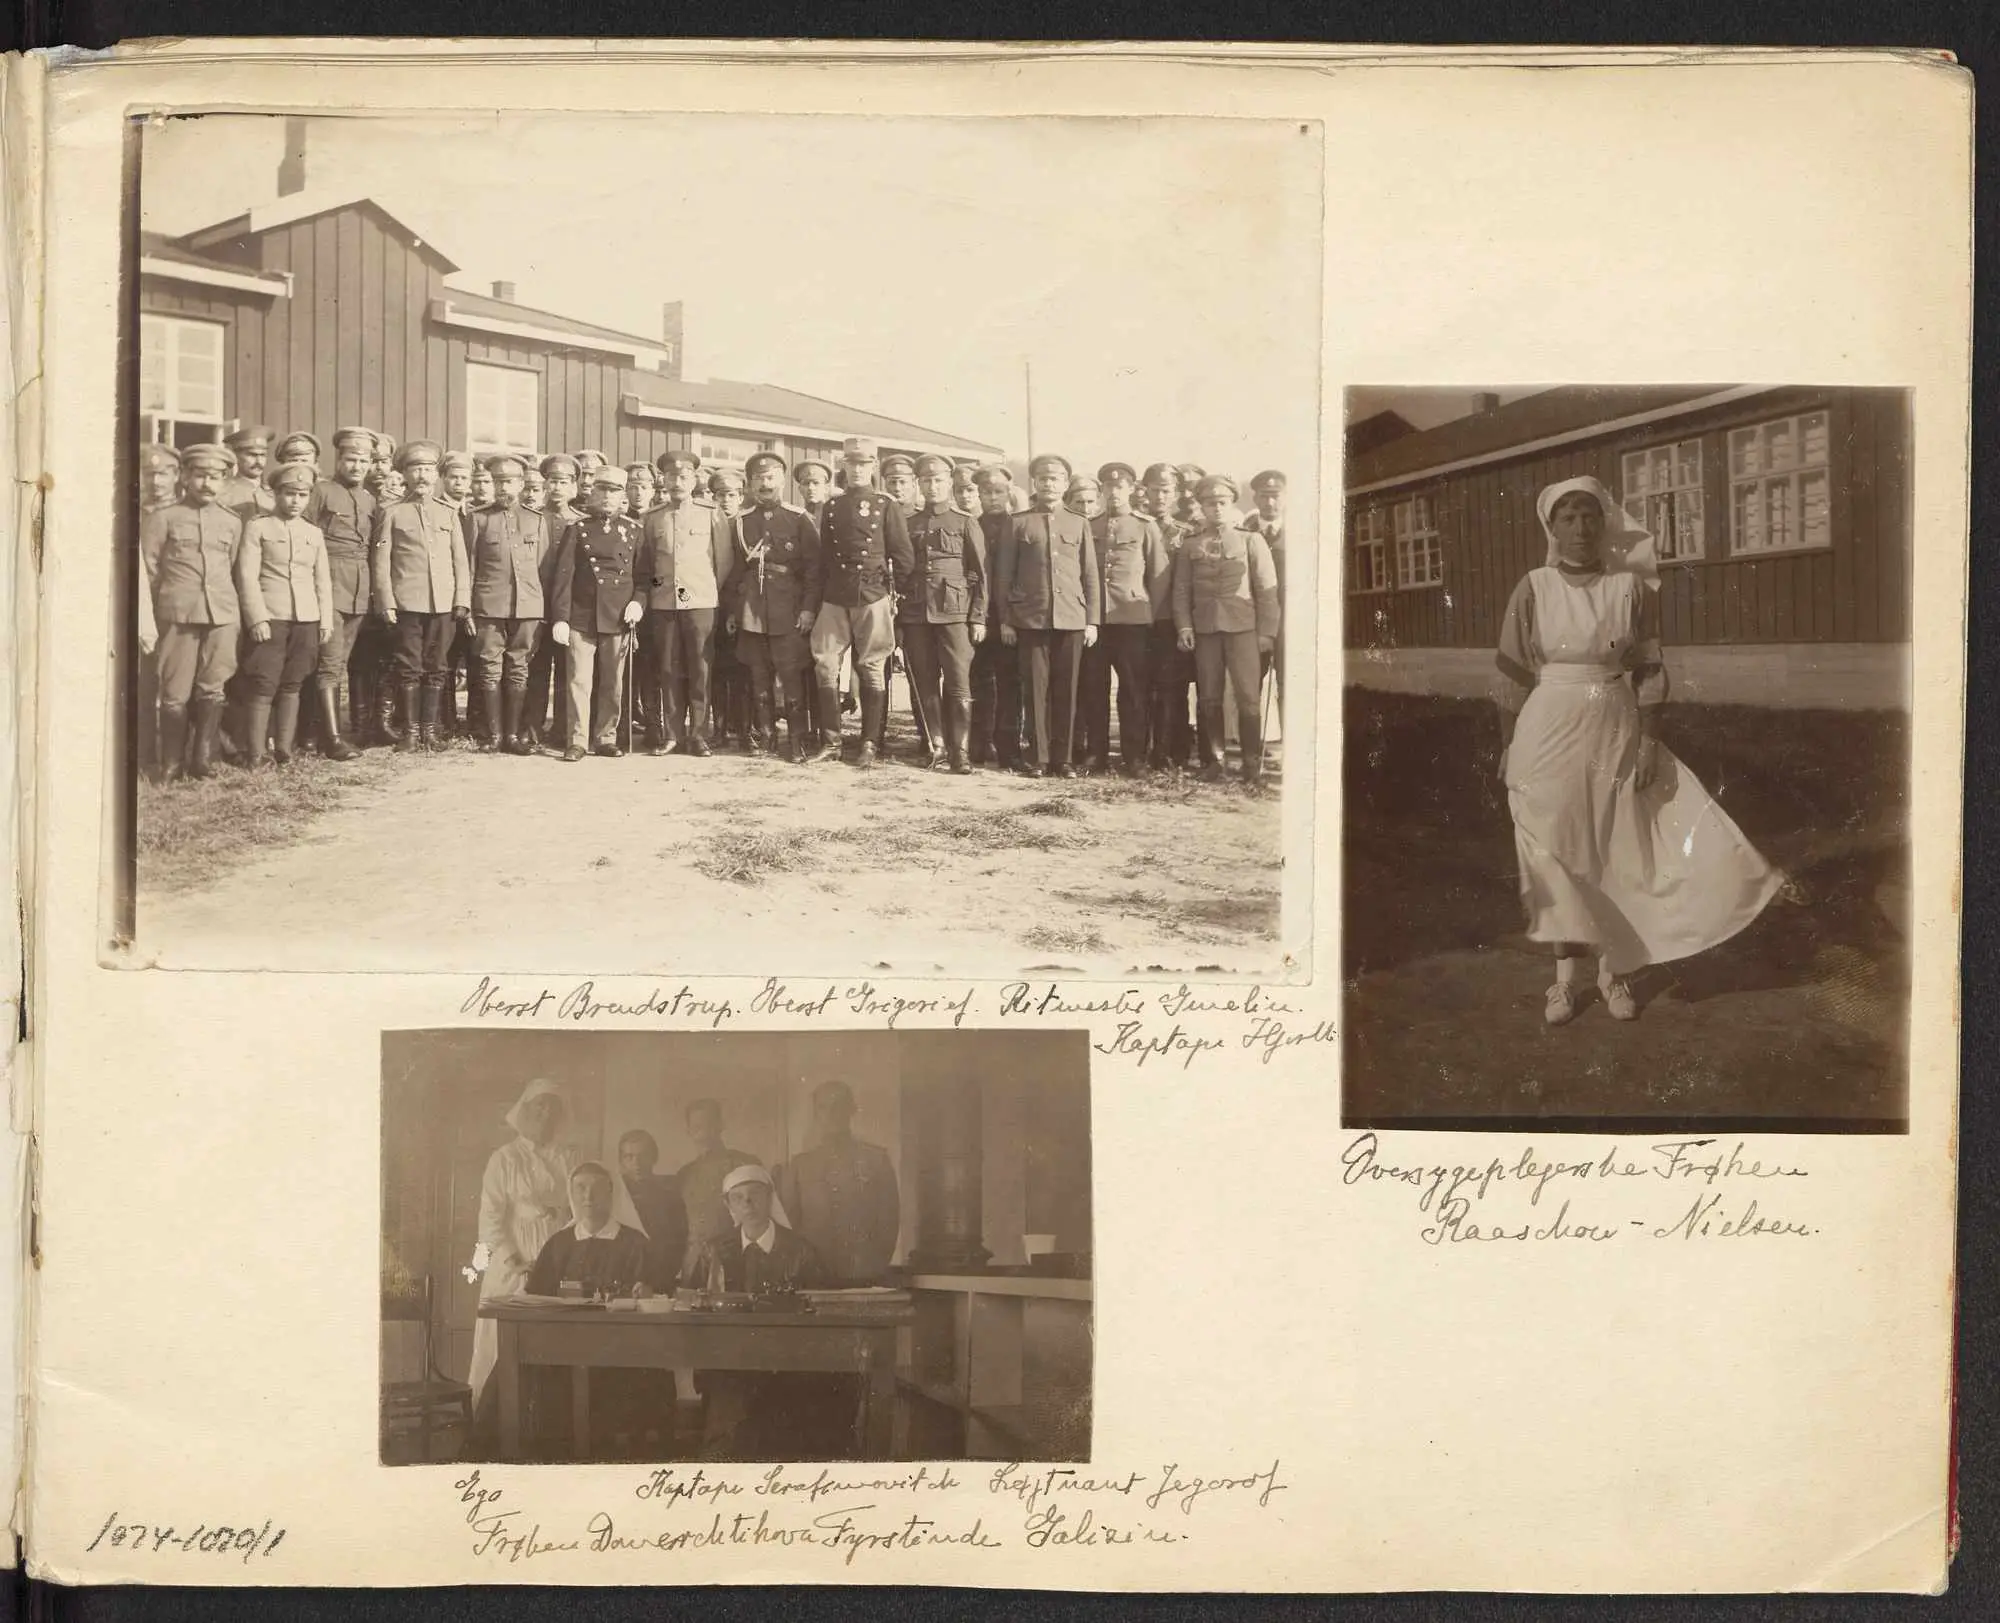 Oberst Brendstrup. Oberst Grigorief. Ritmester Gmelin.
Kaptajn Hjorth
Oversygeplejerske Frøken
Raaschou-Nielsen.
Ego Kaptajn Serafimovitch Løjtnant Jegorof
Frøken Fyrstinde Galizin.
1974-1080/1